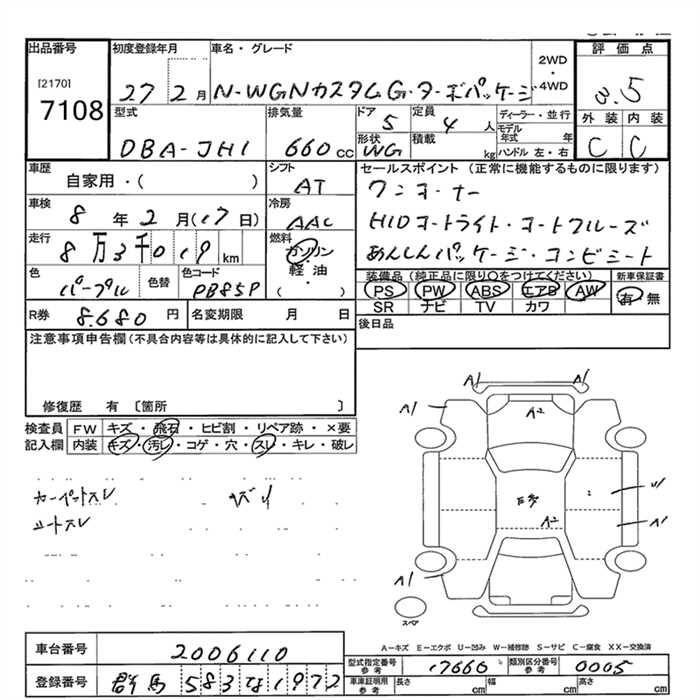 出品番号
[2170]
7108
初度登録年月
27 2月
車名・グレード
N-WGNカスタムG・ターボパッケージ
2WD
・
4WD
評価点
3.5
型式
DBA-JH1
排気量
660cc
ドア
5
定員
4人
ディーラー・並行
形状
WG
積載
kg
モデル年式 年
ハンドル 左・右
外装 内装
C C
車歴
自家用・( )
シフト
AT
セールスポイント(正常に機能するものに限ります)
ワンオーナー
車検
8年2月(17日)
冷房
AAC
HIDオートライト・オートクルーズ
走行
8万3千019km
燃料
ガソリン
・
軽油
・
( )
あんしんパッケージ・コンビシート
色
パープル
色替
色コード
PB85P
装備品(純正品に限り○をつけてください)
PS PW ABS エアB AW
SR ナビ TV カワ
新車保証書
有・無
R券
8.680円
名変期限 月 日
後日品
注意事項申告欄(不具合内容等は具体的に記入して下さい)
修復歴 有 〔箇所 〕
検査員記入欄
FW キズ・飛石・ヒビ割・リペア跡・×要
内装 キズ・汚レ・コゲ・穴・スレ・キレ・破レ
カーペットスレ
シートスレ
A1 A1
A1 A2
A2
A1
A1
スペア
A-キズ E-エクボ U-凹み W-補修跡 S-サビ C-腐食 XX-交換済
車台番号
2006110
登録番号
群馬583な1972
型式指定番号 参考
17660
類別区分番号 参考
0005
車車証明用 参考
長さ cm 幅 cm 高さ cm